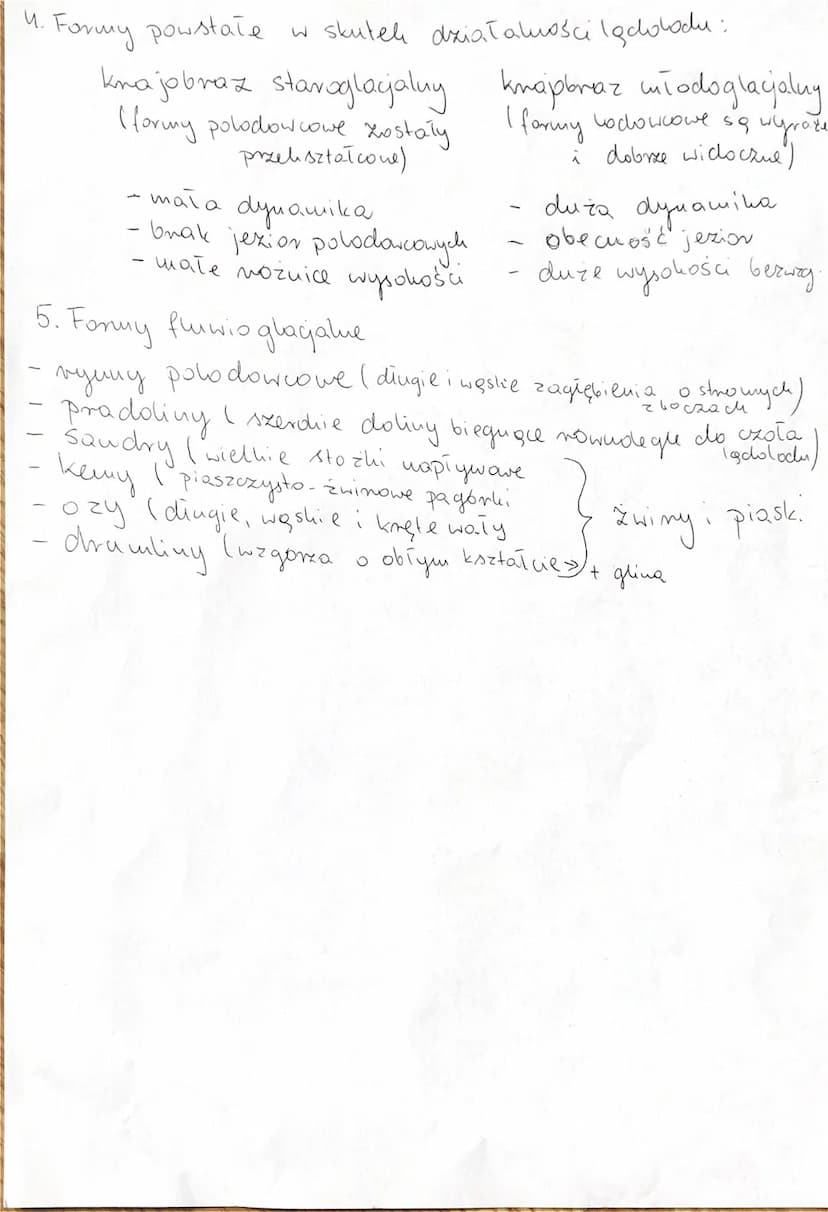 4. Formy powstałe w skutek działalności lądolodu:
krajobraz staroglacjalny
(formy polodowcowe zostały
przekształcone)
- mała dynamika
- brak jezior polodowcowych
- małe różnice wysokości
krajobraz młodoglacjalny
(formy lodowcowe są wyraźne
i dobrze widoczne)
- duża dynamika
- obecność jezior
- duże wysokości bezwzg.
5. Formy fluwioglacjalne
- rynny polodowcowe (długie i wąskie zagłębienia o stromych
zboczach)
- pradoliny (szerokie doliny biegnące równolegle do czoła
lądolodu)
- sandry (wielkie stożki napływowe
- kemy (piaszczysto-żwirowe pagórki
- ozy (długie, wąskie i kręte wały
- drumliny (wzgórza o obłym kształcie → + glina
} żwiry i piaski